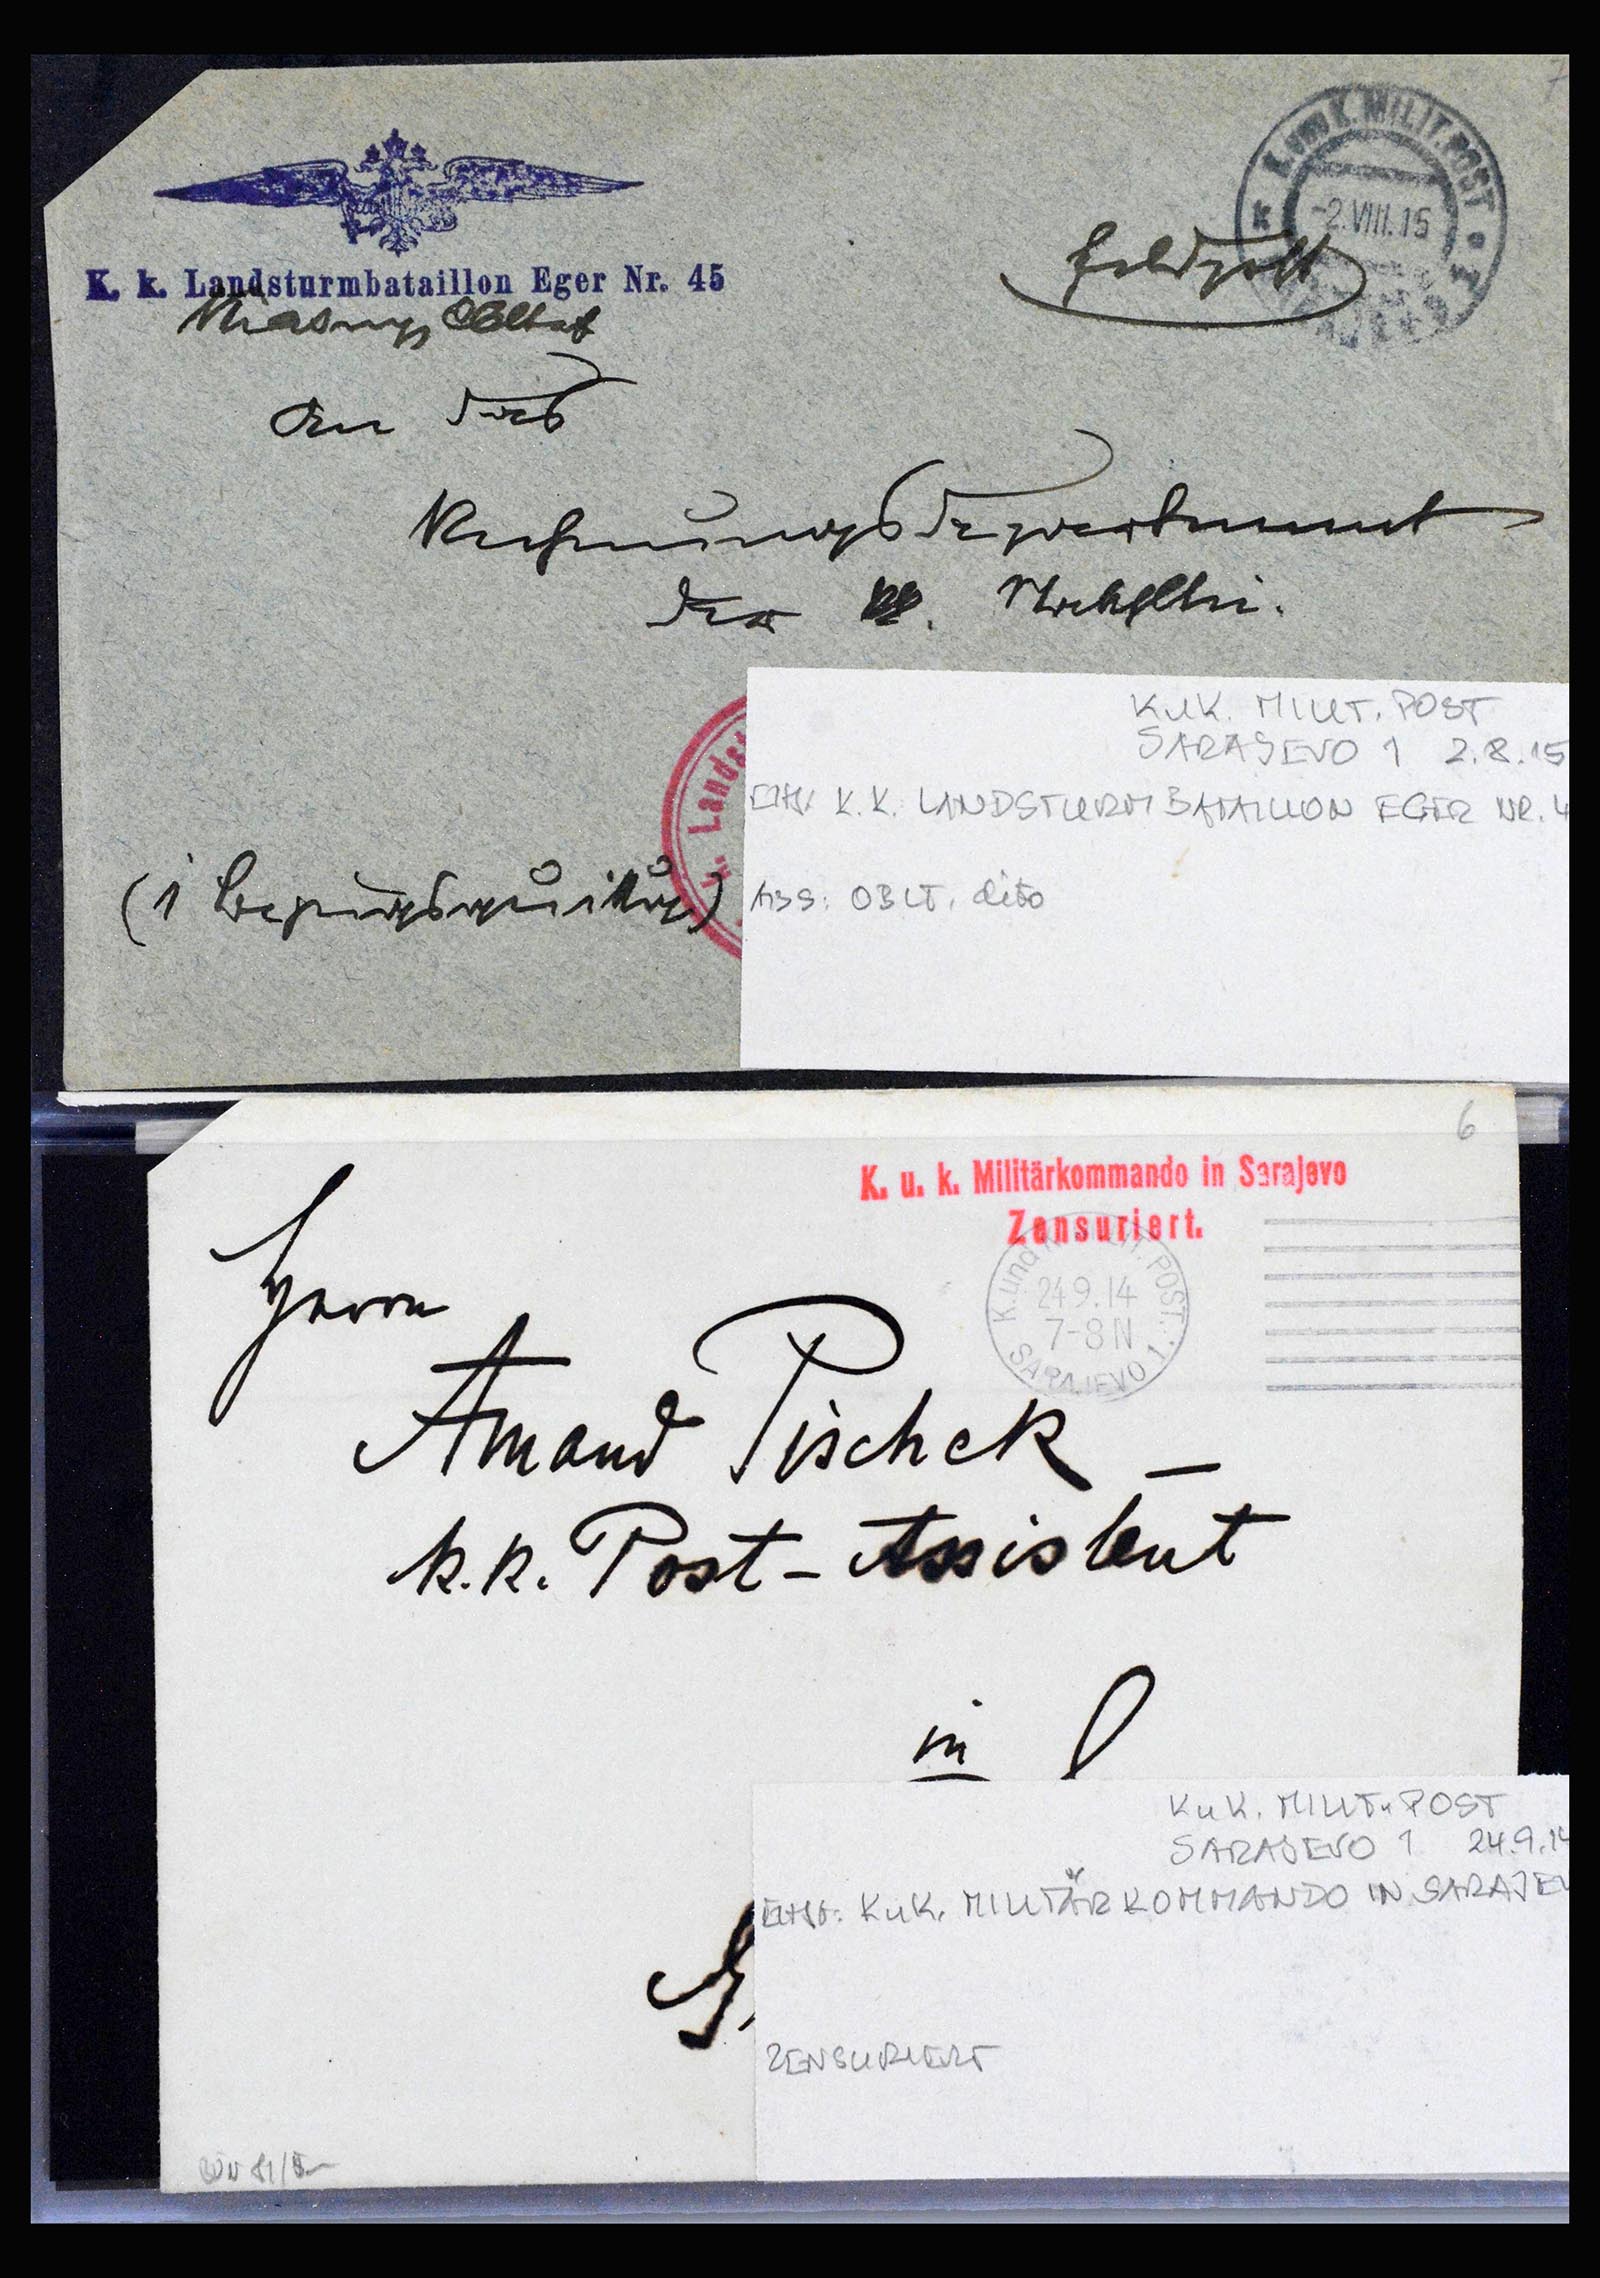 7
K. und K. MILIT. POST
k e
-2.VIII.15
K. k. Landsturmbataillon Eger Nr. 45
Feldpost
An das
Rechnungsdepartement
der
(1
K. Lands
KuK. MILIT. POST
SARAJEVO 1 2.8.15
K.K. LANDSTURMBATAILLON EGER NR. 4
ABS: OBLT. dito
6
K. u. k. Militärkommando in Sarajevo
Zensuriert.
K. und K. MILIT. POST
24 9.14
7-8 N
SARAJEVO 1.
Herrn
Amand Pischek –
k.k. Post-Assistent
in
KuK. MILIT. POST
SARAJEVO 1 24.9.14
KuK. MILITÄRKOMMANDO IN SARAJEV
ZENSURIERT